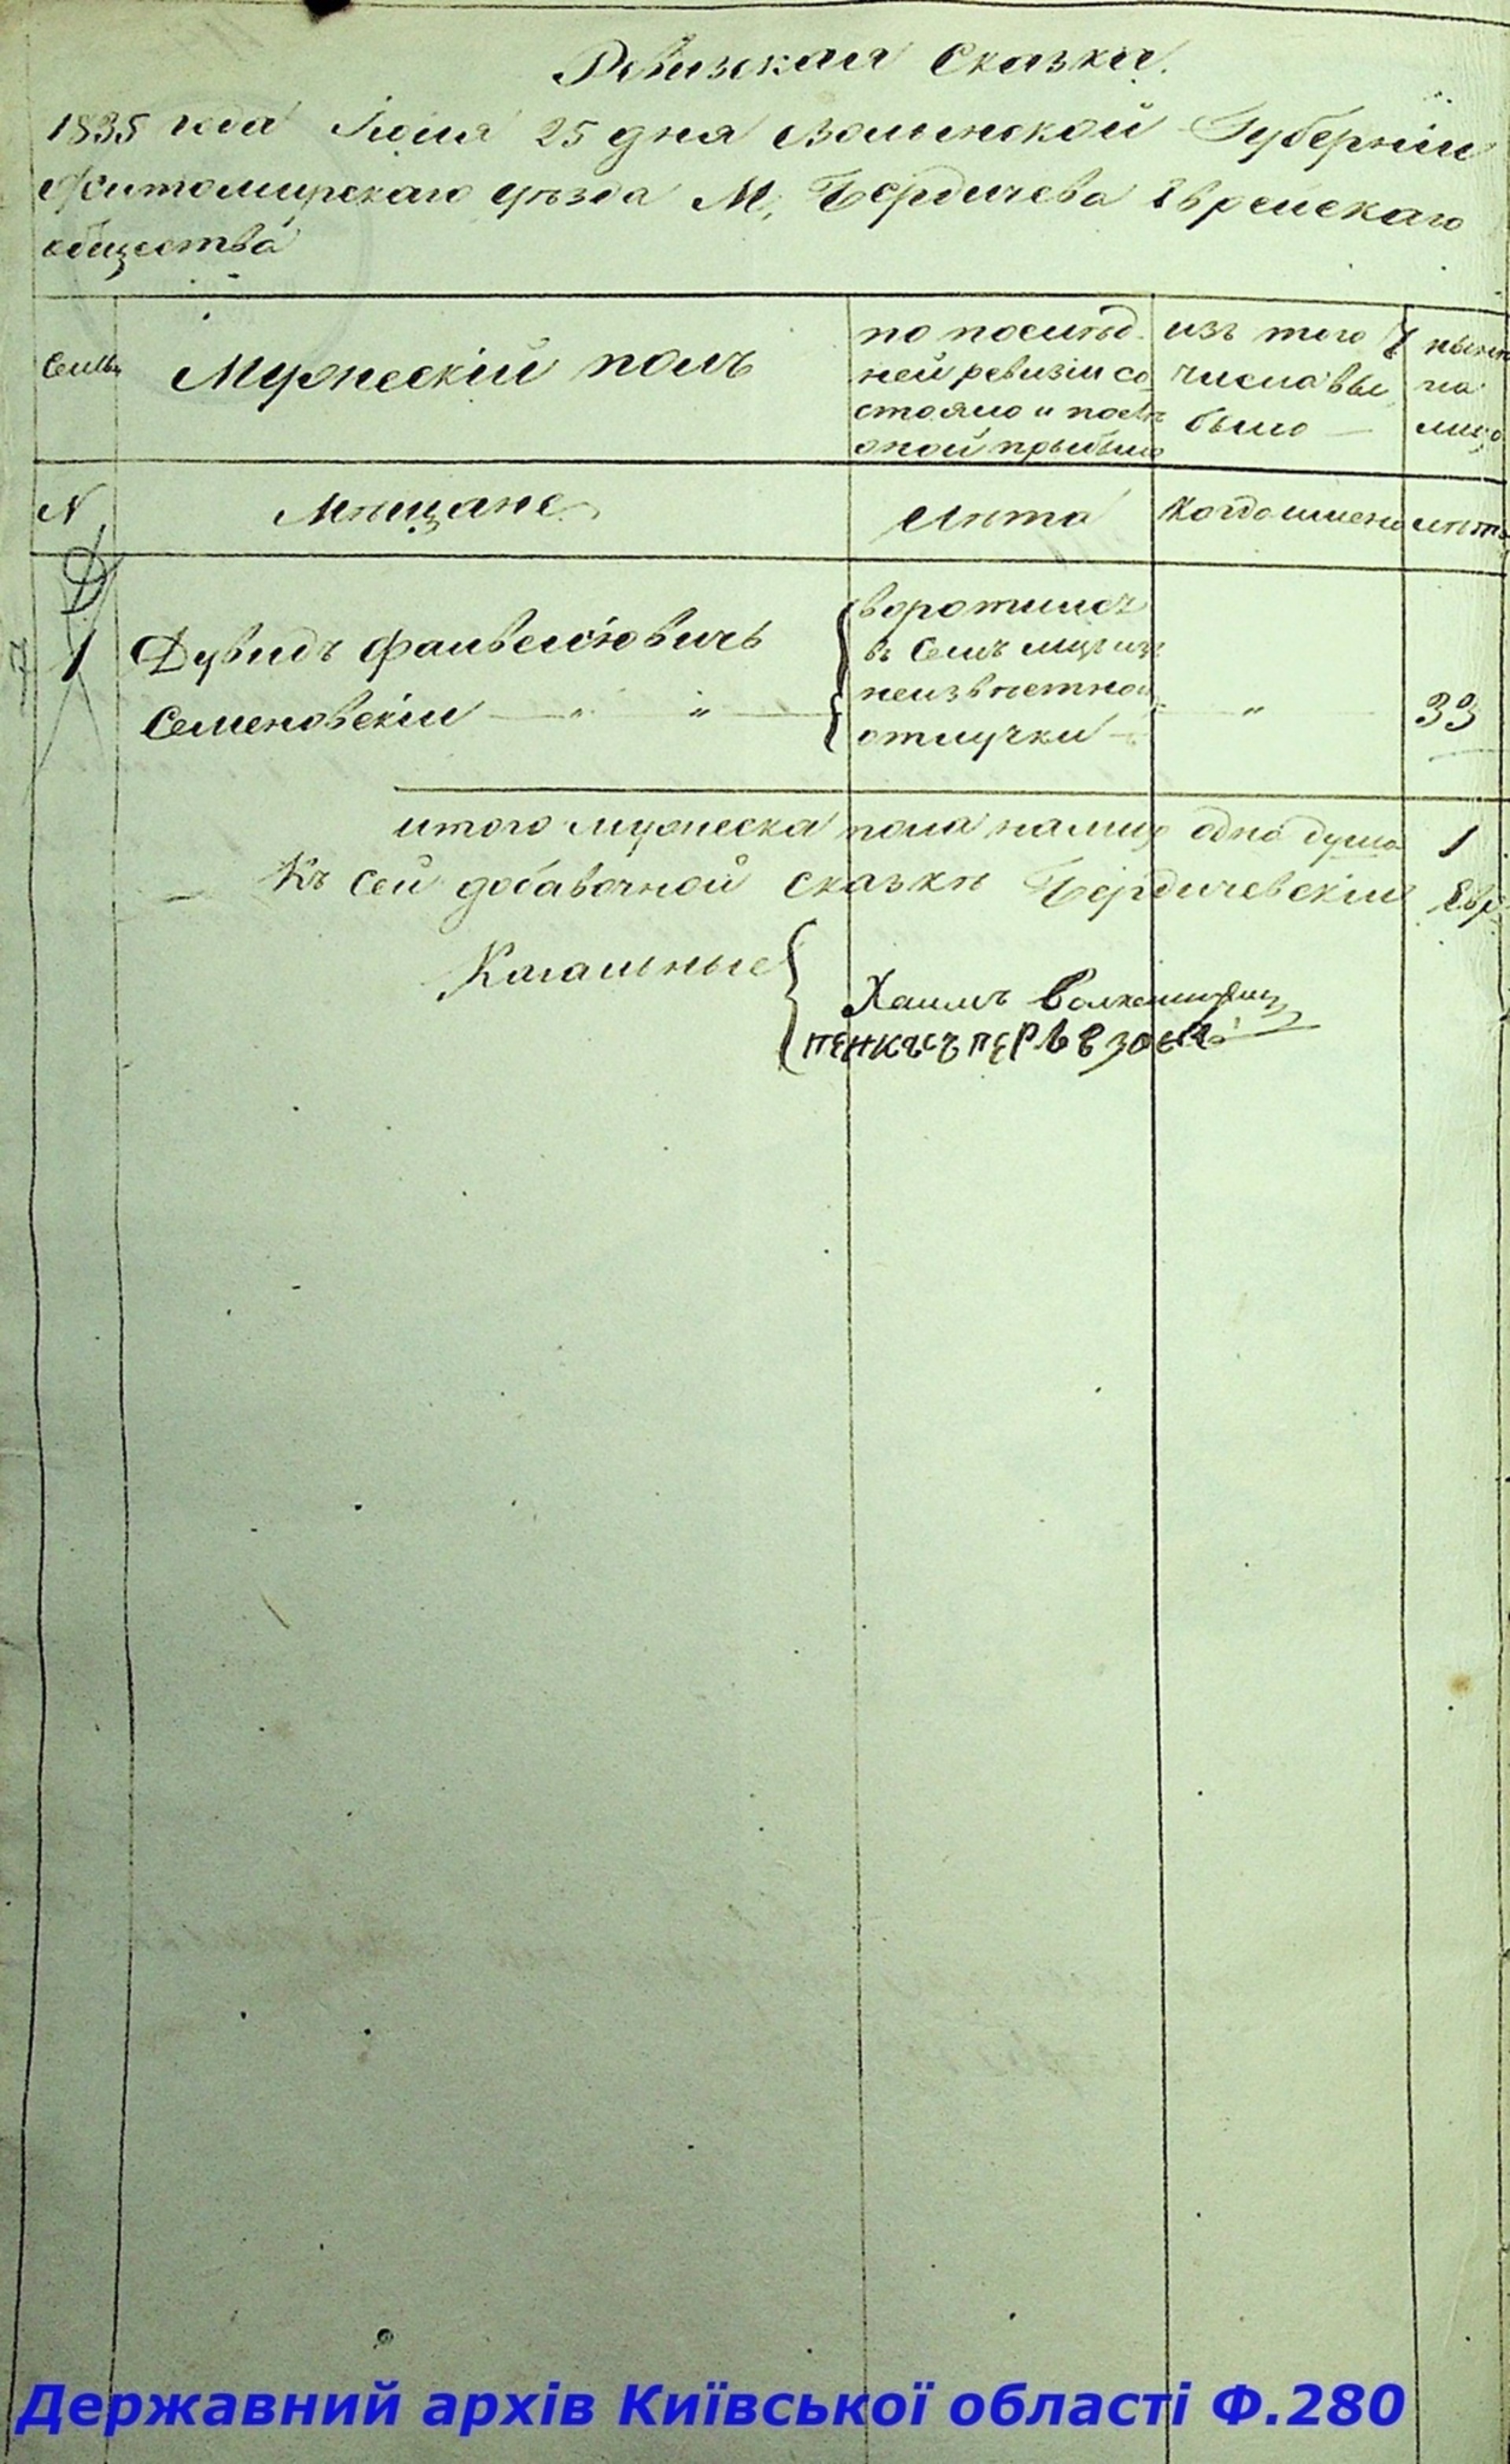 Ревизская Сказка.
1835 года Іюля 25 дня Волынской Губерніи
Житомирскаго уѣзда М, Бердичева Еврейскаго
общества
Семьи
Мужескій полъ
по послѣд
ней ревизіи со
стояло и послѣ
оной прыбыло
изъ того
числа вы
было —
нынѣ
на
лицо
N
Мѣщане
лѣта
Когда имено
лѣта
1
Дувидъ Файвелiовичъ
Семеновскій — " " —
воротился
въ семъ
неизвѣстной
отлучки —
"
33
итого мужеска пола налицо одна душа 1
Къ сей добавочной сказкѣ Бердичевскіи Евр
Кагальные
Хаимъ